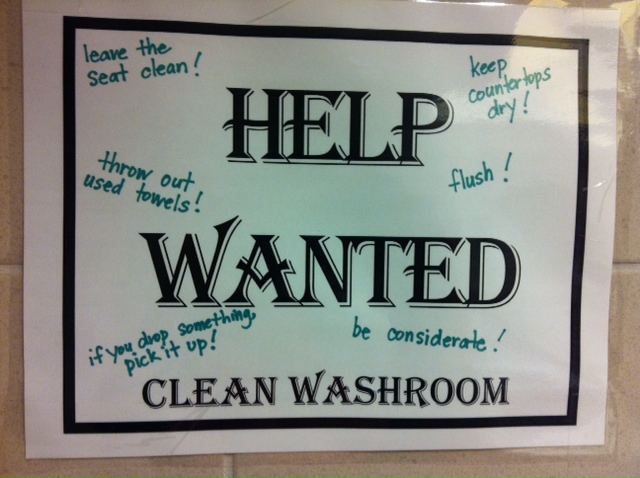 leave the
seat clean!
keep
countertops
dry!
HELP
throw out
used towels!
flush!
WANTED
if you drop something,
pick it up!
be considerate!
CLEAN WASHROOM